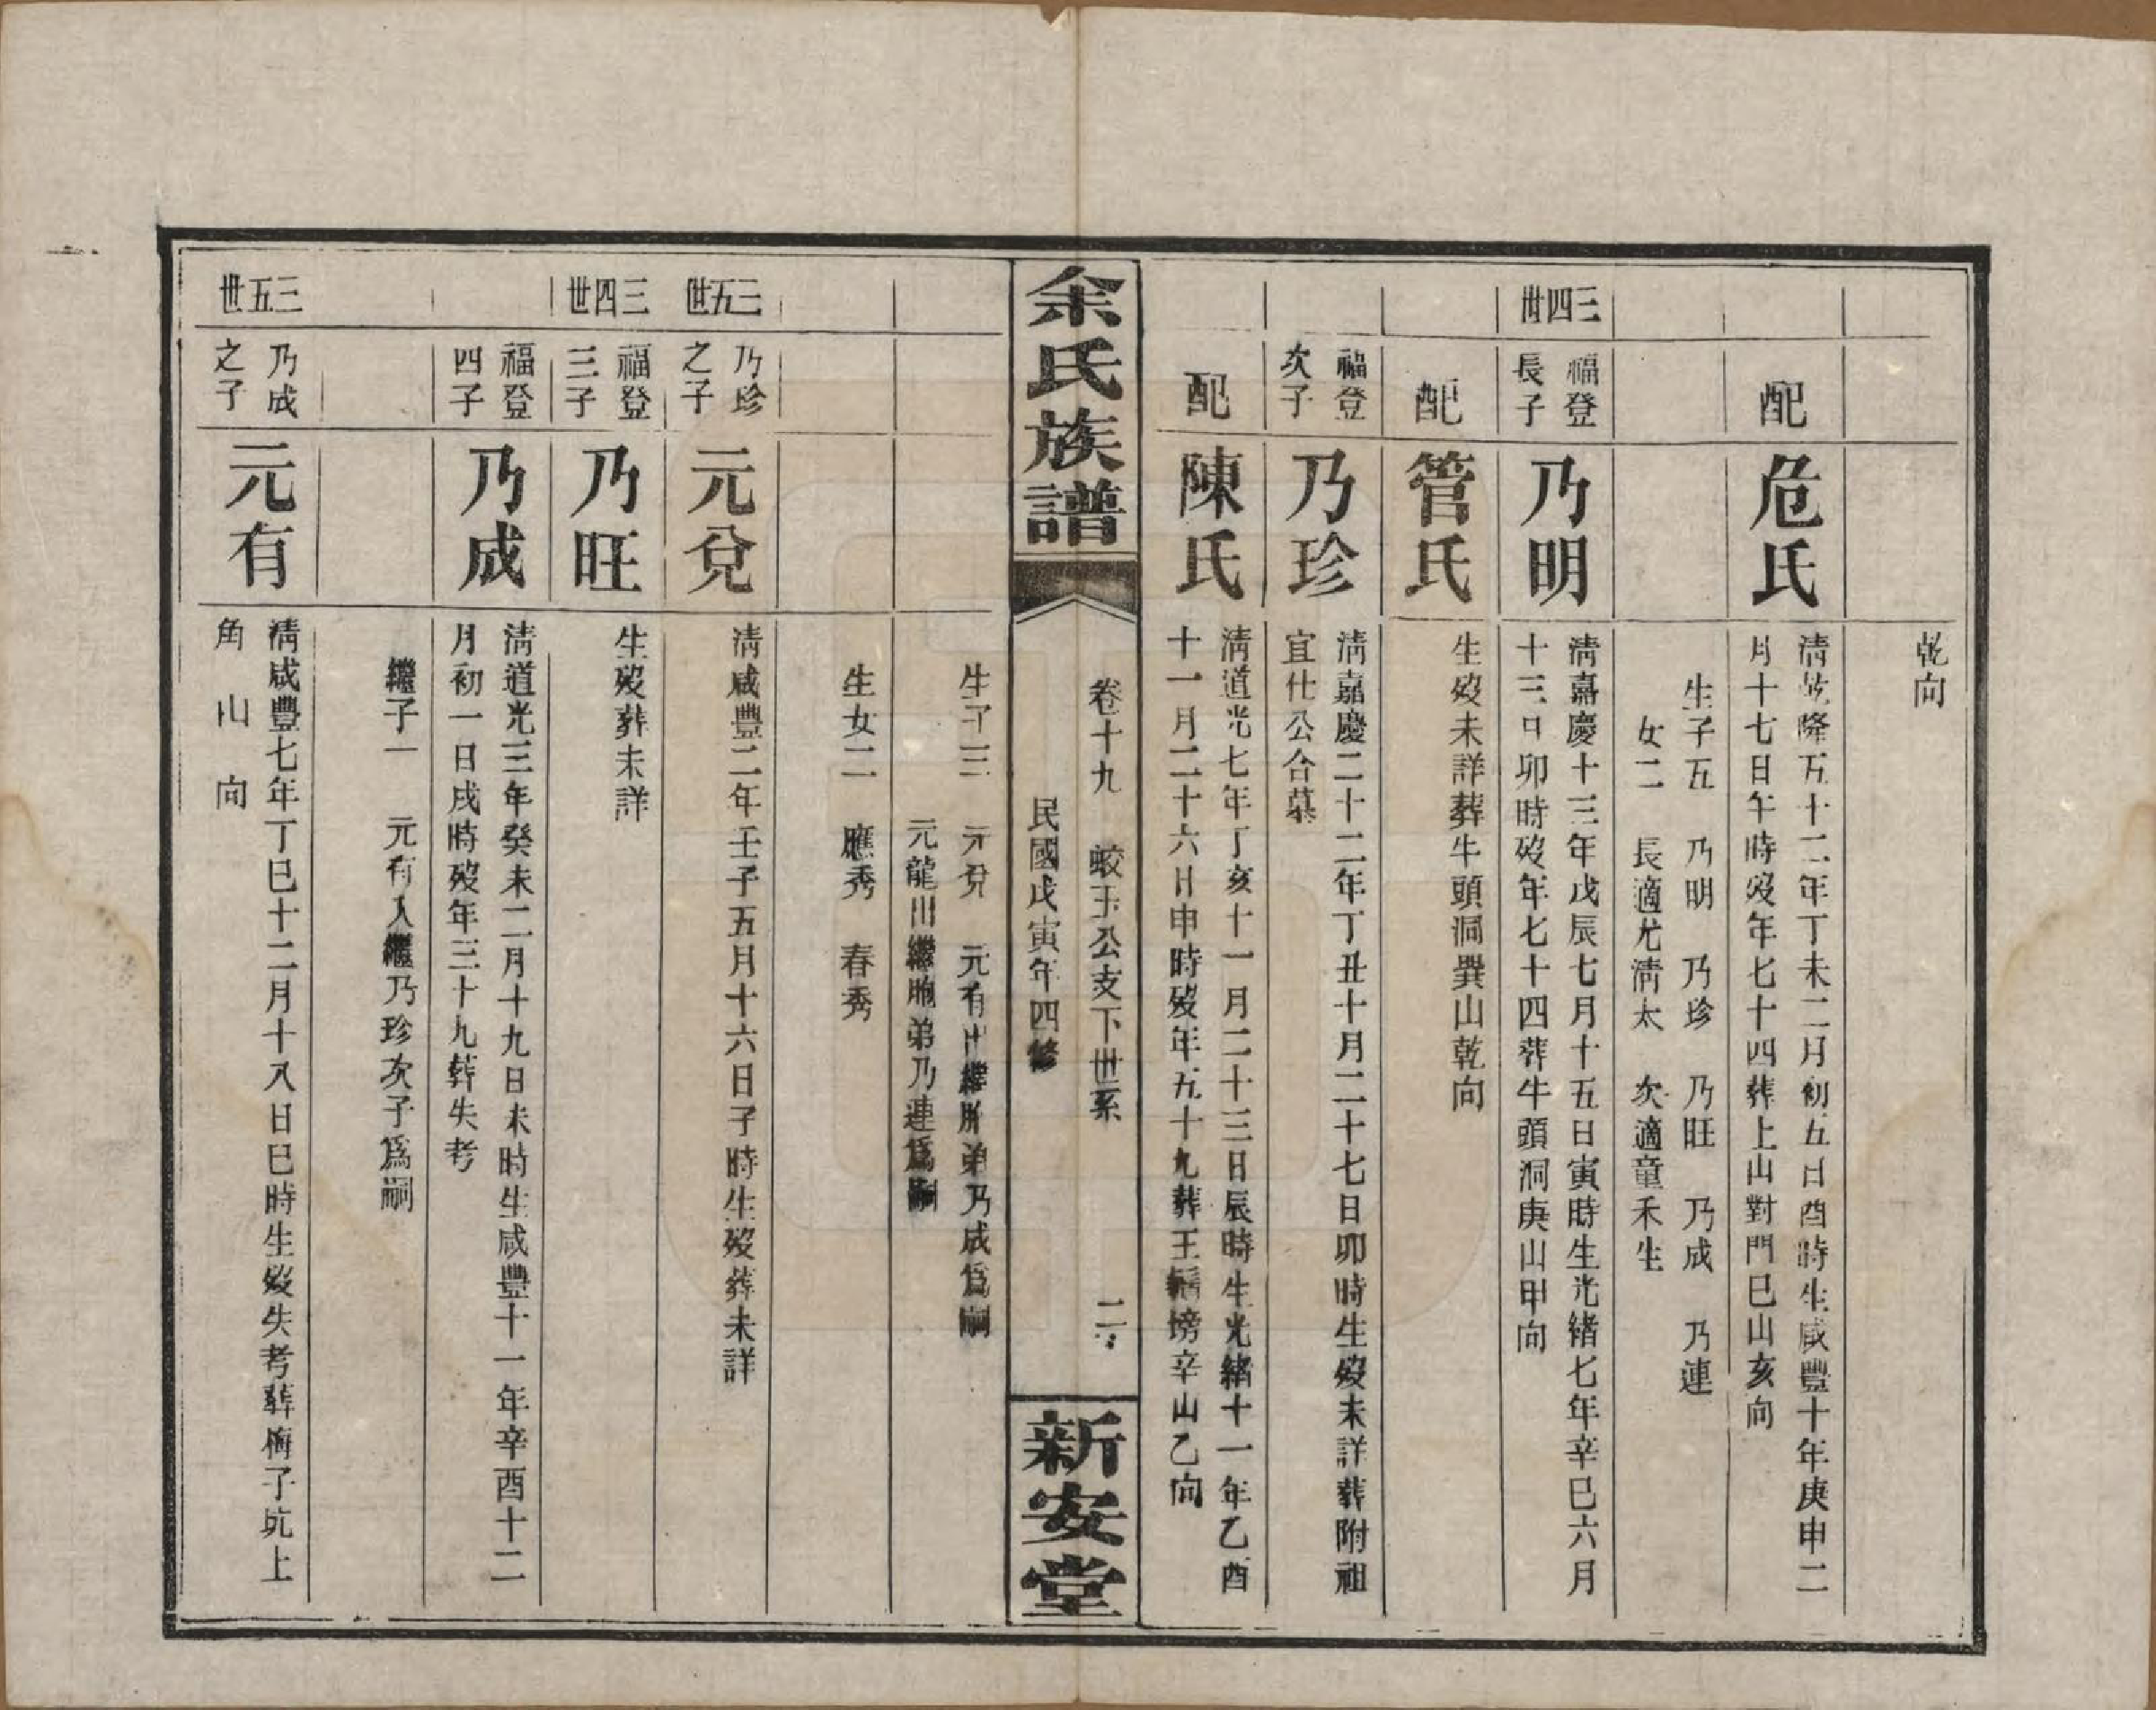 乾向
配
危氏
淸乾隆五十二年丁未二月初五日酉時生咸豐十年庚申二
月十七日午時歿年七十四葬上山對門巳山亥向
生子五　乃明　乃珍　乃旺　乃成　乃連
女二　長適尤淸太　次適童禾生
三四世
福登
長子
乃明
淸嘉慶十三年戊辰七月十五日寅時生光緒七年辛巳六月
十三日卯時歿年七十四葬牛頭洞庚山甲向
配
管氏
生歿未詳葬牛頭洞巽山乾向
福登
次子
乃珍
淸嘉慶二十二年丁丑十月二十七日卯時生歿未詳葬附祖
宜仕公合墓
配
陳氏
淸道光七年丁亥十一月二十三日辰時生光緒十一年乙酉
十一月二十六日申時歿年五十九葬王塝辛山乙向
余氏族譜
卷十九　蛟玉公支下世系　二
民國戊寅年四修
新安堂
生子三　元兌　元有出繼胞弟乃成爲嗣
元龍出繼胞弟乃連爲嗣
生女二　應秀　春秀
三五世
乃珍
之子
元兌
淸咸豐二年壬子五月十六日子時生歿葬未詳
三四世
福登
三子
乃旺
生歿葬未詳
福登
四子
乃成
淸道光三年癸未二月十九日未時生咸豐十一年辛酉十二
月初一日戌時歿年三十九葬失考
繼子一　元有入繼乃珍次子爲嗣
三五世
乃成
之子
元有
淸咸豐七年丁巳十二月十八日巳時生歿失考葬梅子坑上
角山向